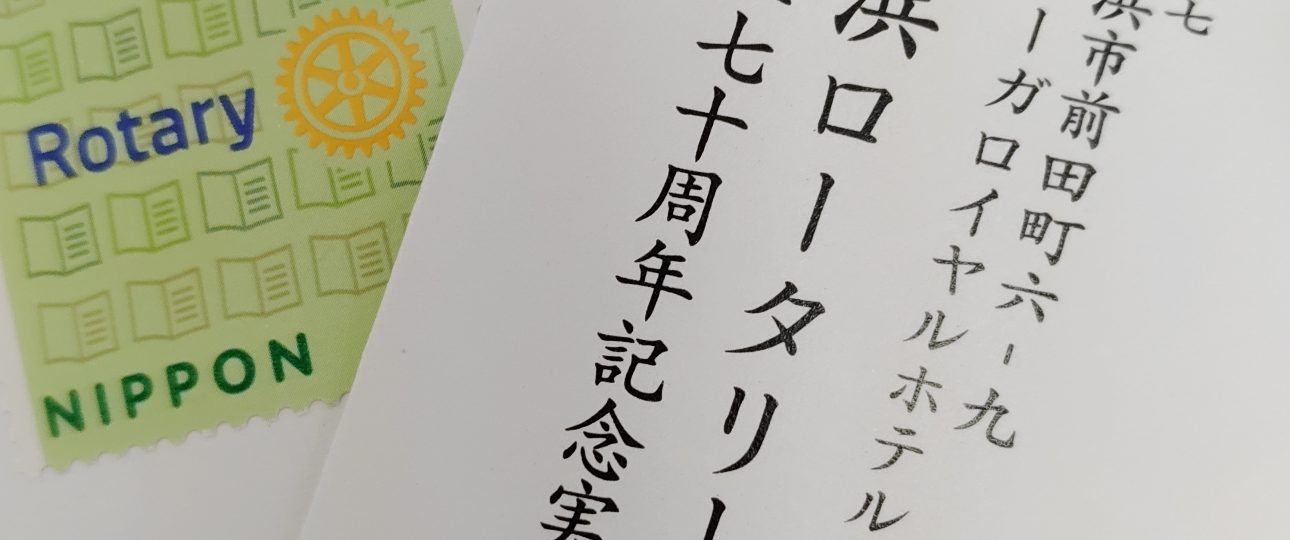 Rotary
NIPPON
七
浜市前田町六-九
ーガロイヤルホテル
浜ロータリー
七十周年記念実